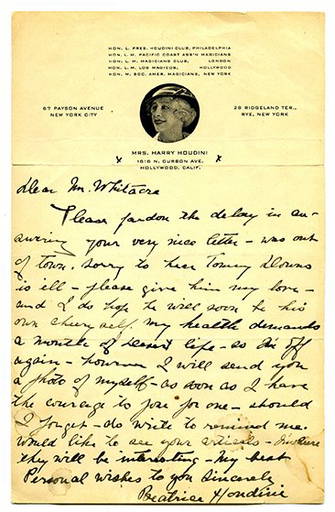 HON. L. PRES. HOUDINI CLUB, PHILADELPHIA
HON. L. M. PACIFIC COAST ASS'N MAGICIANS
HON. L. M. MAGICIANS CLUB, LONDON
HON. L. M. LOS MAGICOS, HOLLYWOOD
HON. M. SOC. AMER. MAGICIANS, NEW YORK
67 PAYSON AVENUE
NEW YORK CITY
28 RIDGELAND TER.,
RYE, NEW YORK
MRS. HARRY HOUDINI
x 1616 N. CURSON AVE. x
HOLLYWOOD, CALIF.
Dear Mr. Whitacre
Please pardon the delay in an-
swering your very nice letter - was out
of town. Sorry to hear Tommy Downs
is ill - please give him my love -
and I do hope he will soon be his
own cheery self. My health demands
a month of desert life - so I'm off
again - however I will send you
a photo of myself - as soon as I have
the courage to pose for one - should
I forget - do write to remind me.
Would like to see your articles - I'm sure
they will be interesting - My best
Personal wishes to you Sincerely
Beatrice Houdini